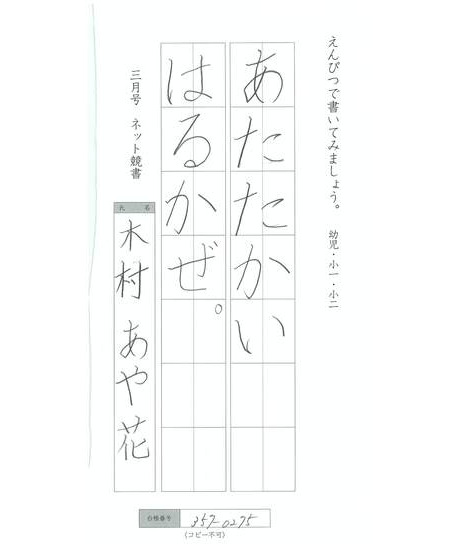 えんぴつで書いてみましょう。 幼児・小一・小二
あたたかい
はるかぜ。
三月号 ネット競書
氏名
木村 あや花
会員番号 357-0275
(コピー不可)